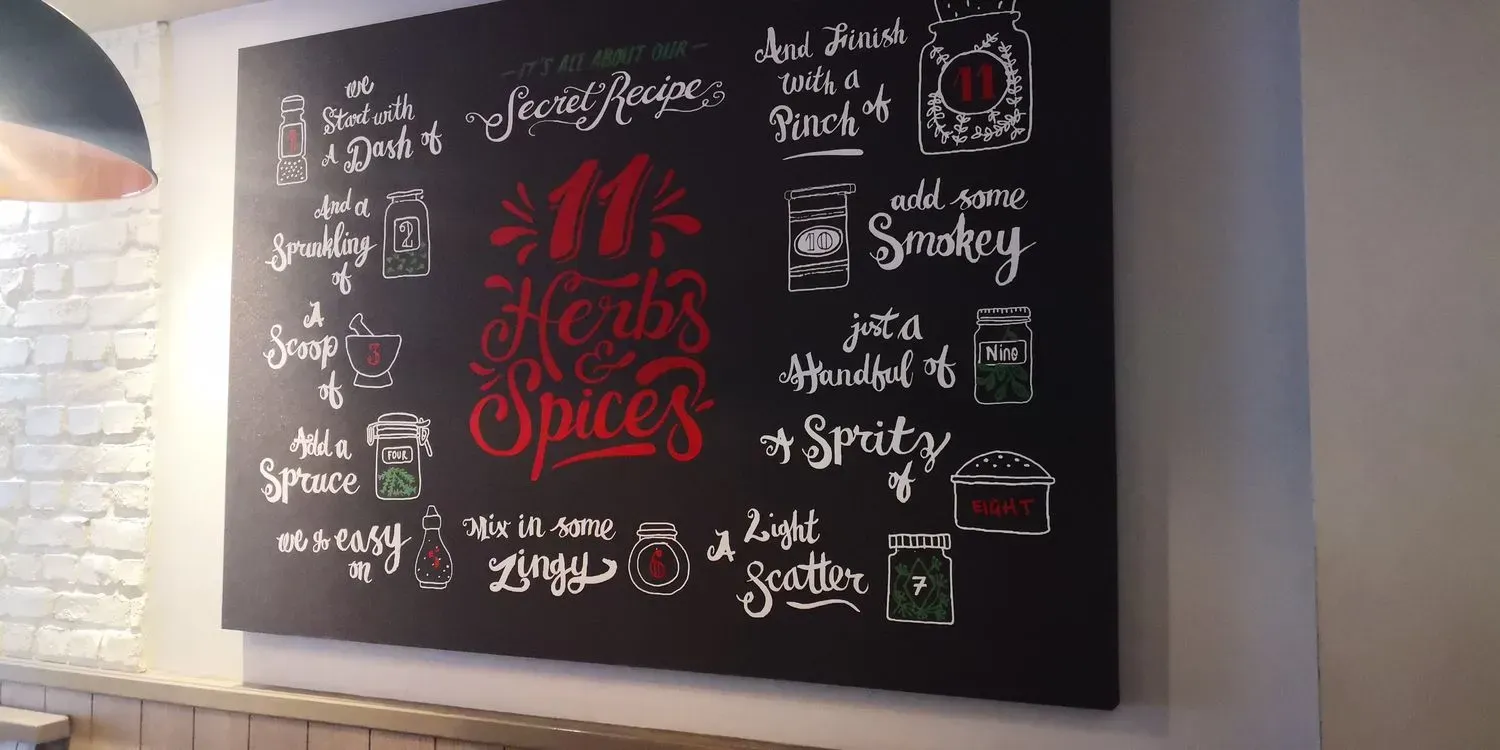 — IT'S ALL ABOUT OUR —
Secret Recipe
11
Herbs
&
Spices
we
Start with
A Dash of
1
And a
Sprinkling
of
2
A
Scoop
of
3
Add a
Spruce
FOUR
we go easy
on
5
Mix in some
Zingy
6
A Light
Scatter
7
A Spritz
of
EIGHT
just a
Handful of
Nine
add some
Smokey
10
And Finish
with a
Pinch of
11